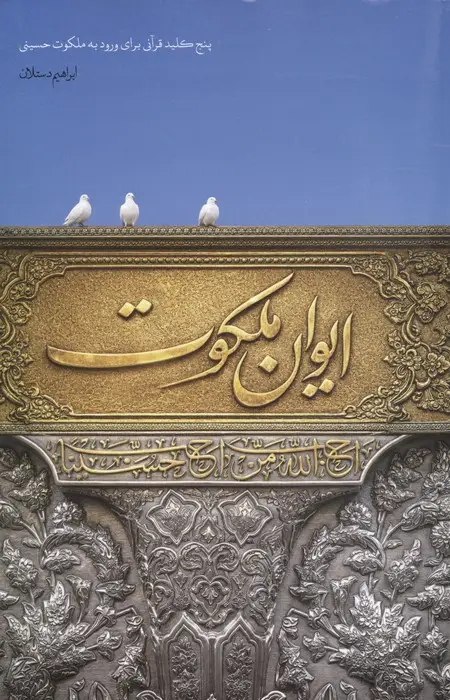 پنج کلید قرآنی برای ورود به ملکوت حسینی
ابراهیم دستلان
ایوان ملکوت
احب الله من احب حسینا